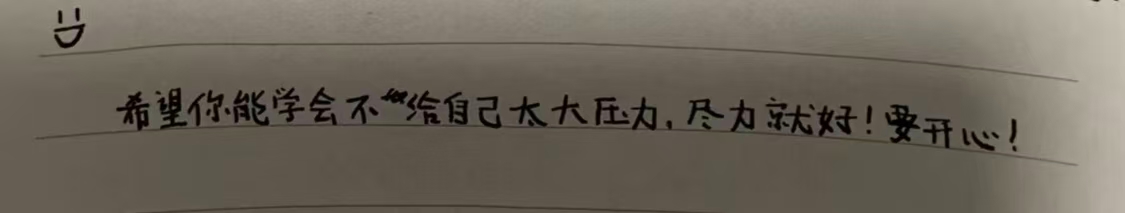 希望你能学会不给自己太大压力，尽力就好！要开心！